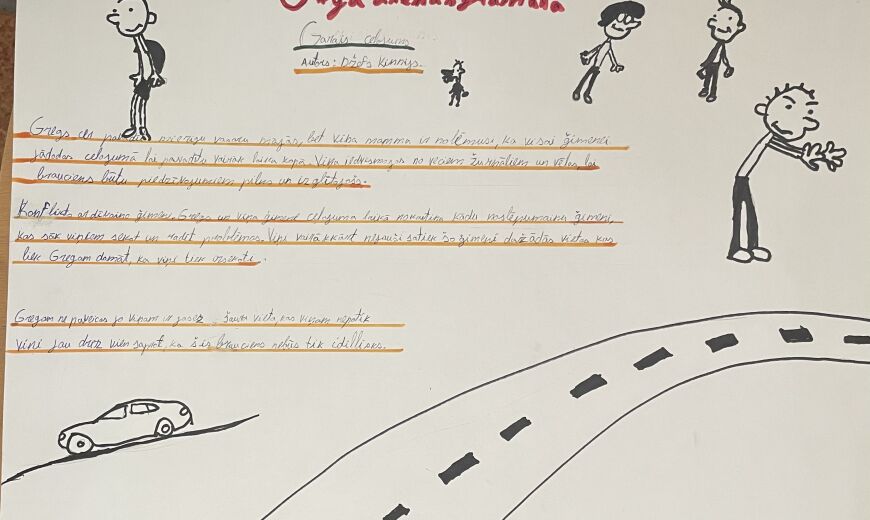 Grega dienasgrāmata
Garais ceļojums
Autors: Džefs Kinnijs.
Gregs cer pavadīt mierīgu vasaru mājās, bet viņa mamma ir nolēmusi, ka visai ģimenei
jādodas ceļojumā lai pavadītu vairāk laika kopā. Viņa iedvesmojas no veciem žurnāliem un vēlas, lai
brauciens būtu piedzīvojumiem pilns un izglītojošs.
Konflikts ar dīvaino ģimeni. Gregs un viņa ģimene ceļojuma laikā kādu noslēpumainu ģimeni,
kas sāk viņiem sekot un radīt problēmas. Viņi vairākkārt nejauši satiek šo ģimeni dažādās vietās kas
liek Gregam domāt, ka viņi tiek izsekoti.
Gregam ne paveicas jo viņam ir šaura vieta, kas viņam nepatīk
viņi jau drīz vien saprot, ka šis brauciens nebūs tik idillisks.